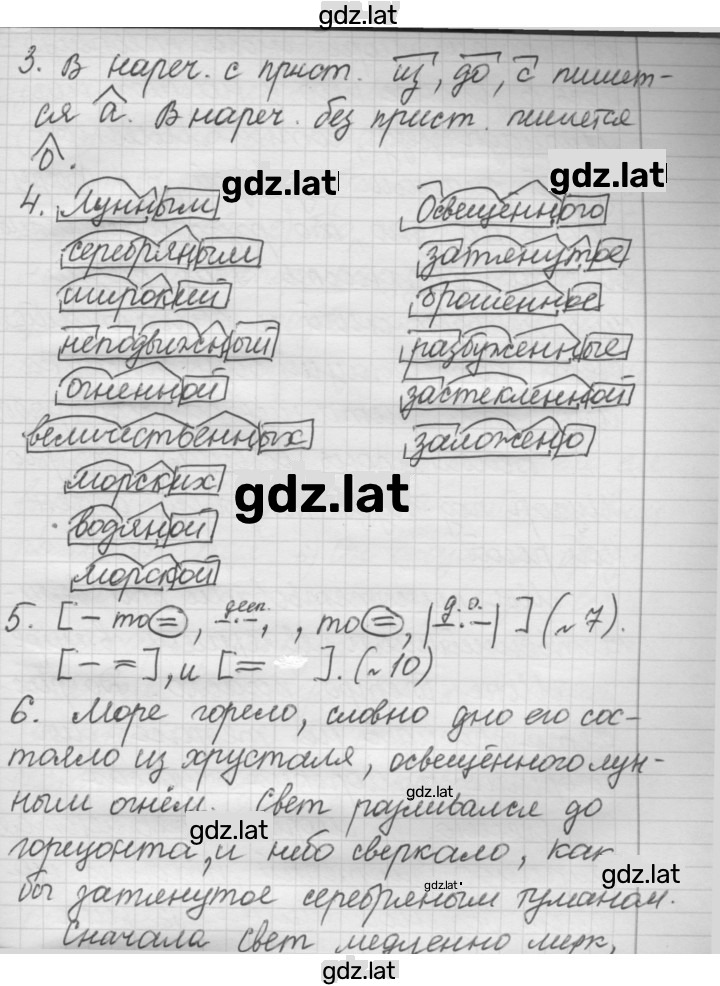 gdz.lat
3. В нареч. с прист. из, до, с пишет-
ся а. В нареч. без прист. пишется
о.
gdz.lat
gdz.lat
4. Лунным Освещённого
серебряным затянутое
широкий брошенное
неподвижный разбуженные
огненной застекленной
величественных заложено
морских
gdz.lat
водяной
морской
5. [– то=, дееп. –·–, , то=, |д.о. –·–|] (~7).
[– =], и [= ]. (~10)
6. Море горело, словно дно его сос-
тояло из хрусталя, освещённого лун-
ным огнём. Свет разливался до
gdz.lat
gdz.lat
горизонта, и небо сверкало, как
gdz.lat
gdz.lat
бы затянутое серебряным туманом.
Сначала свет медленно мерк,
gdz.lat